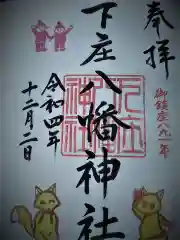 奉拝
御鎮座八九一年
下庄八幡神社
令和四年
十二月二日